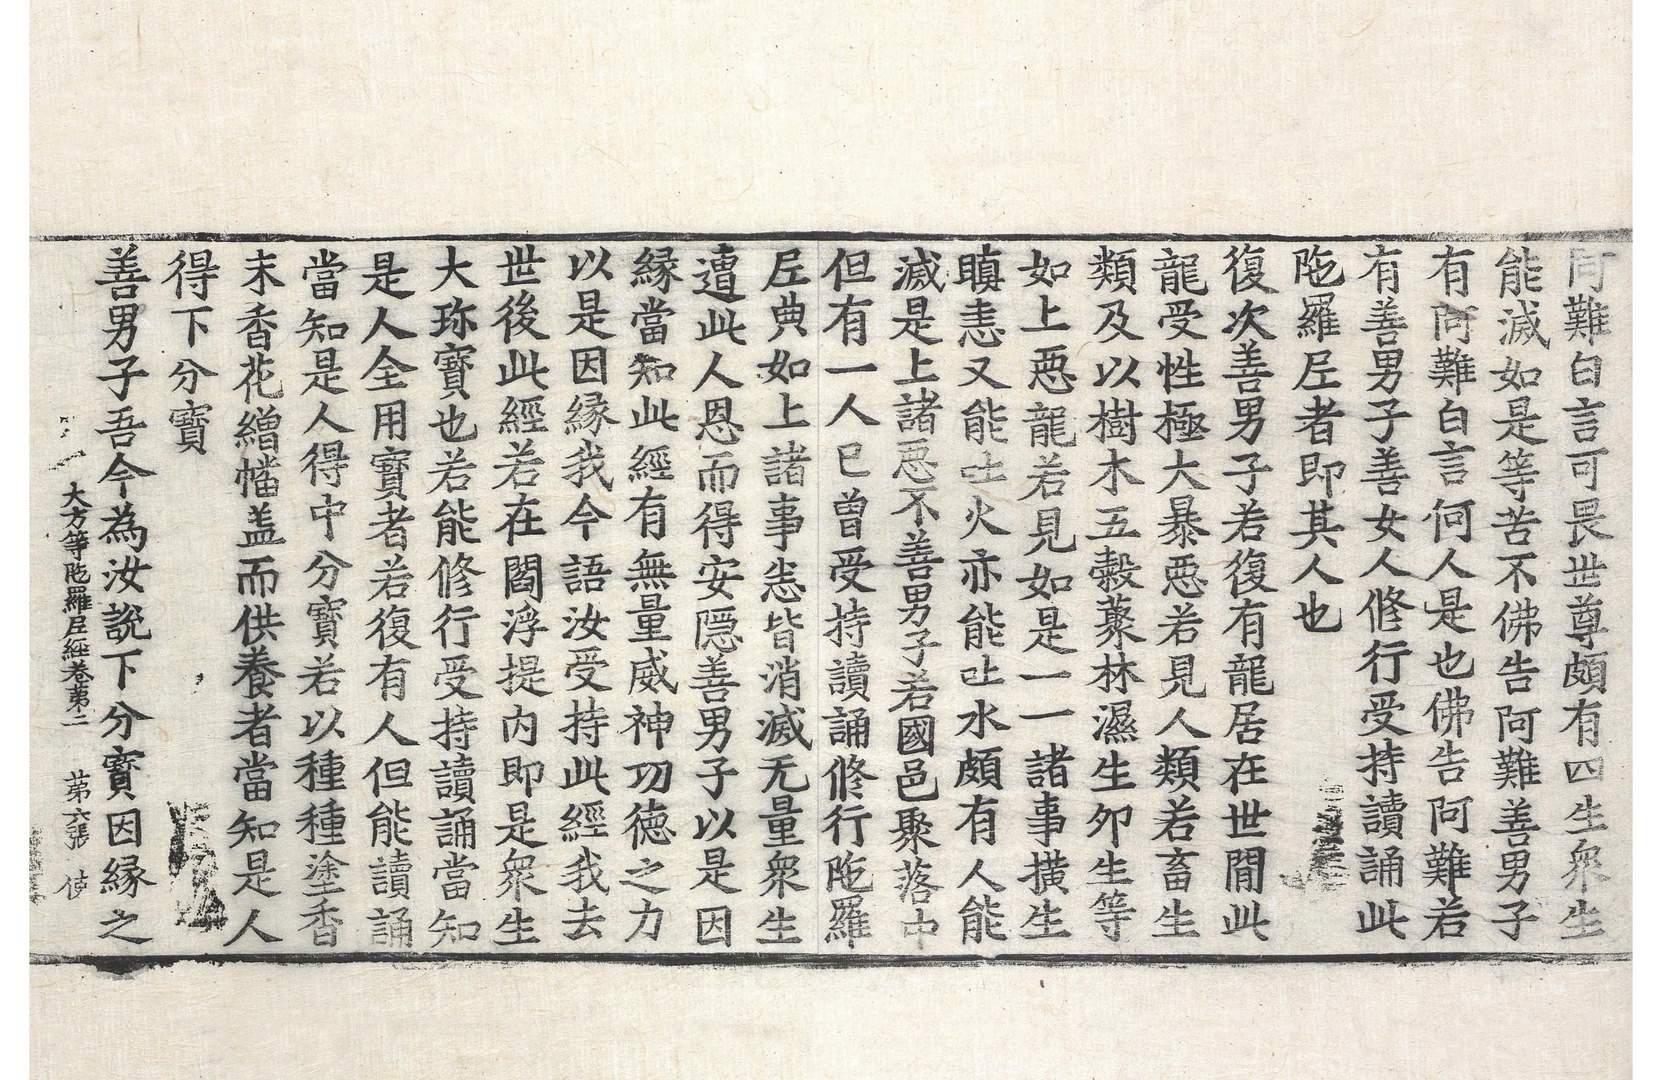 阿難白言可畏世尊頗有四生衆生
能滅如是等苦不佛告阿難善男子
有阿難白言何人是也佛告阿難若
有善男子善女人俢行受持讀誦此
陁羅尼者即其人也
復次善男子若復有龍居在世閒此
龍受性極大暴惡若見人類若畜生
類及以樹木五穀藂林濕生卵生等
如上惡龍若見如是一一諸事撗生
瞋恚又能吐火亦能吐水頗有人能
滅是上諸惡不善男子若國邑聚落中
但有一人已曾受持讀誦俢行陁羅
尼典如上諸事悉皆消滅无量衆生
遭此人恩而得安隱善男子以是因
縁當知此經有無量威神功徳之力
以是因縁我今語汝受持此經我去
世後此經若在閻浮提内即是衆生
大珎寶也若能俢行受持讀誦當知
是人全用寶者若復有人但能讀誦
當知是人得中分寶若以種種塗香
末香花繒幡盖而供養者當知是人
得下分寶
善男子吾今為汝説下分寶因縁之
大方等陁羅尼經卷苐二 苐六張 使